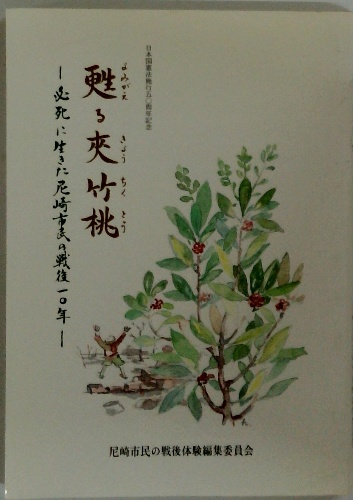 日本国憲法施行五〇周年記念
甦る夾竹桃
よみがえ
きょう ちく とう
―必死に生きた尼崎市民の戦後一〇年―
尼崎市民の戦後体験編集委員会